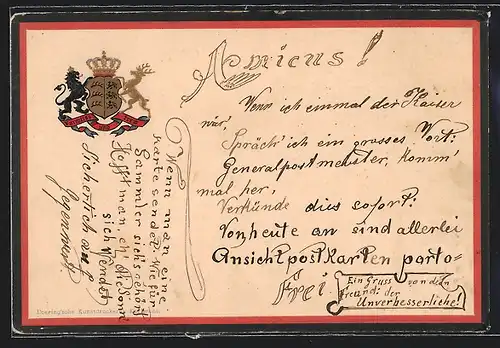 Amicus!
Wenn ich einmal der Kaiser
wär,
Spräch' ich ein grosses Wort:
Generalpostmeister, komm'
mal her,
Verkünde dies sofort:
Von heute an sind allerlei
Ansichtpostkarten porto-
frei.
Ein Gruss von dein
Freund: der
Unverbesserliche!
Wenn man eine
Karte sendet wie für
Sammler sich's gehört
Hofft man, eh' die Sonn'
sich wendet
Sicherlich auf
Gegenwert